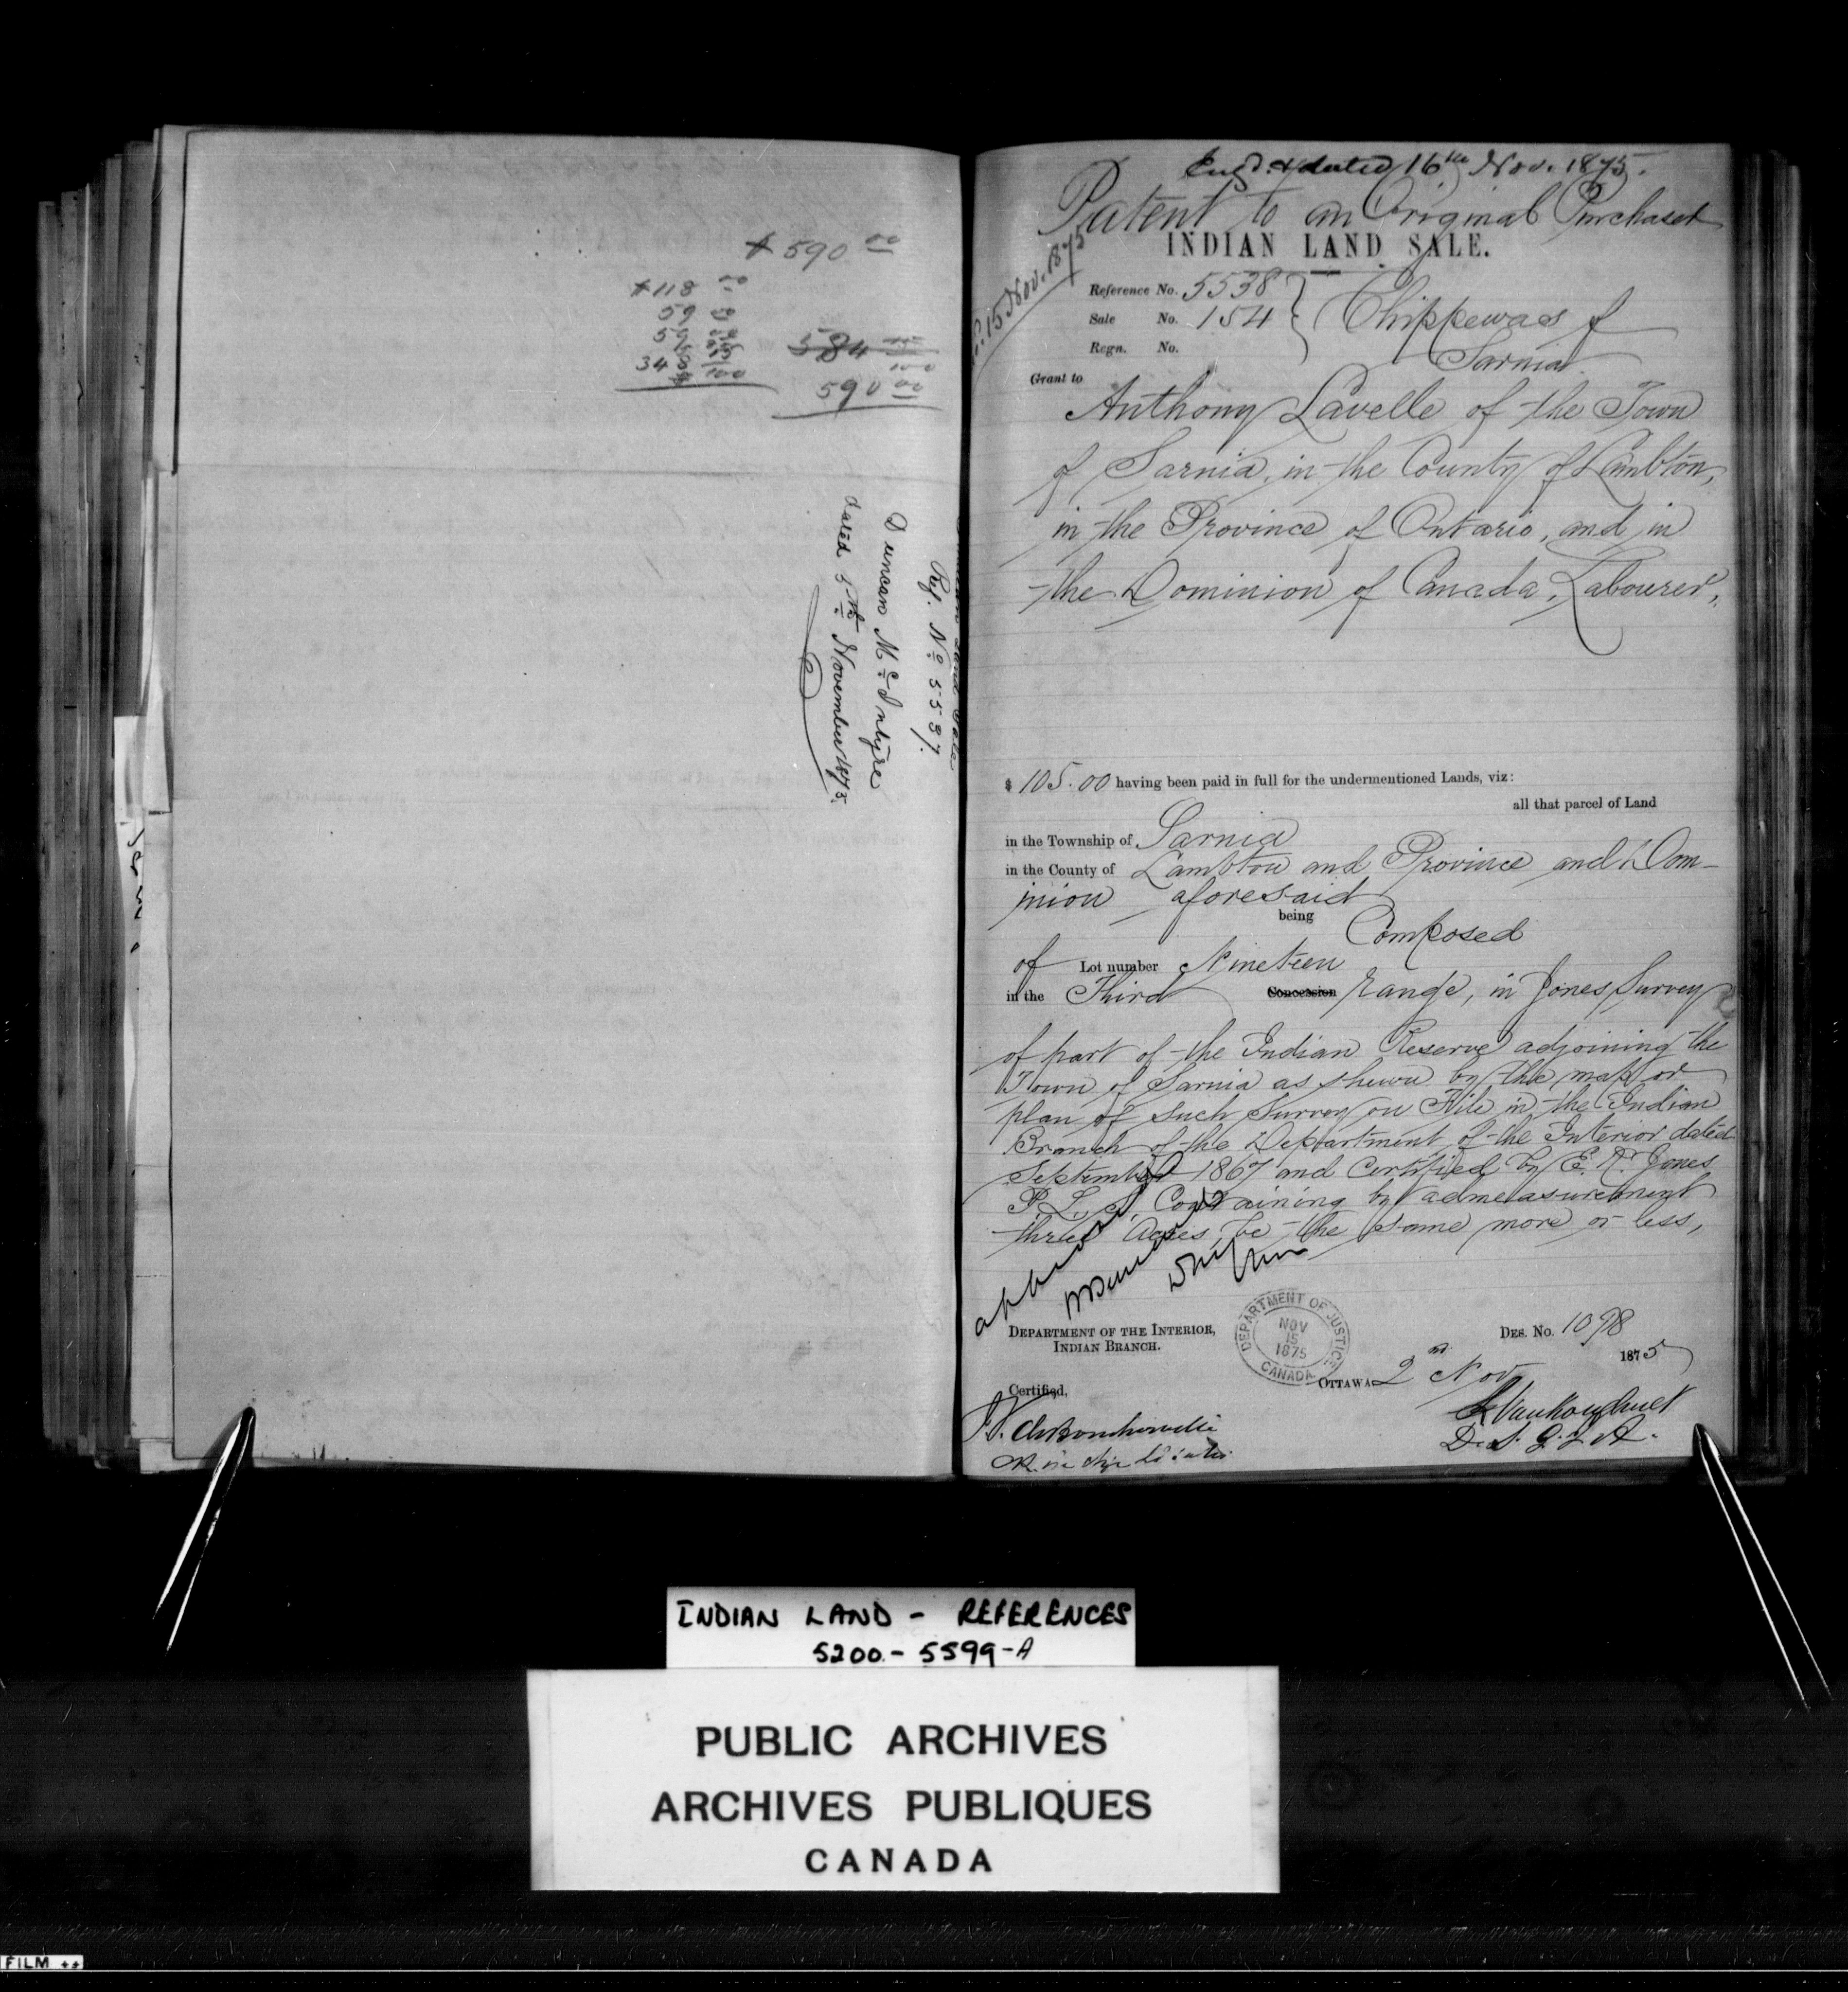 $590 00
$118 00
59 00
59 00
348 15/100
584 15/100
590 00
Ref. No 5537.
Duncan McIntyre
dated 5th November 1875.
Eng'd. & dated 16th Nov. 1875.
Patent to an Original Purchaser
INDIAN LAND SALE.
15 Nov. 1875
Reference No. 5538
Sale No. 154
Regn. No.
Chippewas of
Sarnia
Grant to
Anthony Lavelle of the Town
of Sarnia, in the County of Lambton,
in the Province of Ontario, and in
the Dominion of Canada, Labourer,
$ 105.00 having been paid in full for the undermentioned Lands, viz:
all that parcel of Land
in the Township of Sarnia
in the County of Lambton and Province and Dom-
inion aforesaid
being
Composed
of Lot number Nineteen
in the Third Concession range, in Jones Survey
of part of the Indian Reserve adjoining the
Town of Sarnia as shewn by the map or
plan of such Survey on File in the Indian
Branch of the Department of the Interior dated
September 1867 and Certified by E. R. Jones
P. L. S. Containing by admeasurement
three Acres, be the same more or less,
DEPARTMENT OF THE INTERIOR,
INDIAN BRANCH.
DEPARTMENT OF JUSTICE
NOV
15
1875
CANADA
DES. No. 1098
OTTAWA 2nd Nov 1875
Certified,
L Vankoughnet
D. S. G. I. A.
INDIAN LAND - REFERENCES
5200 - 5599-A
PUBLIC ARCHIVES
ARCHIVES PUBLIQUES
CANADA
FILM